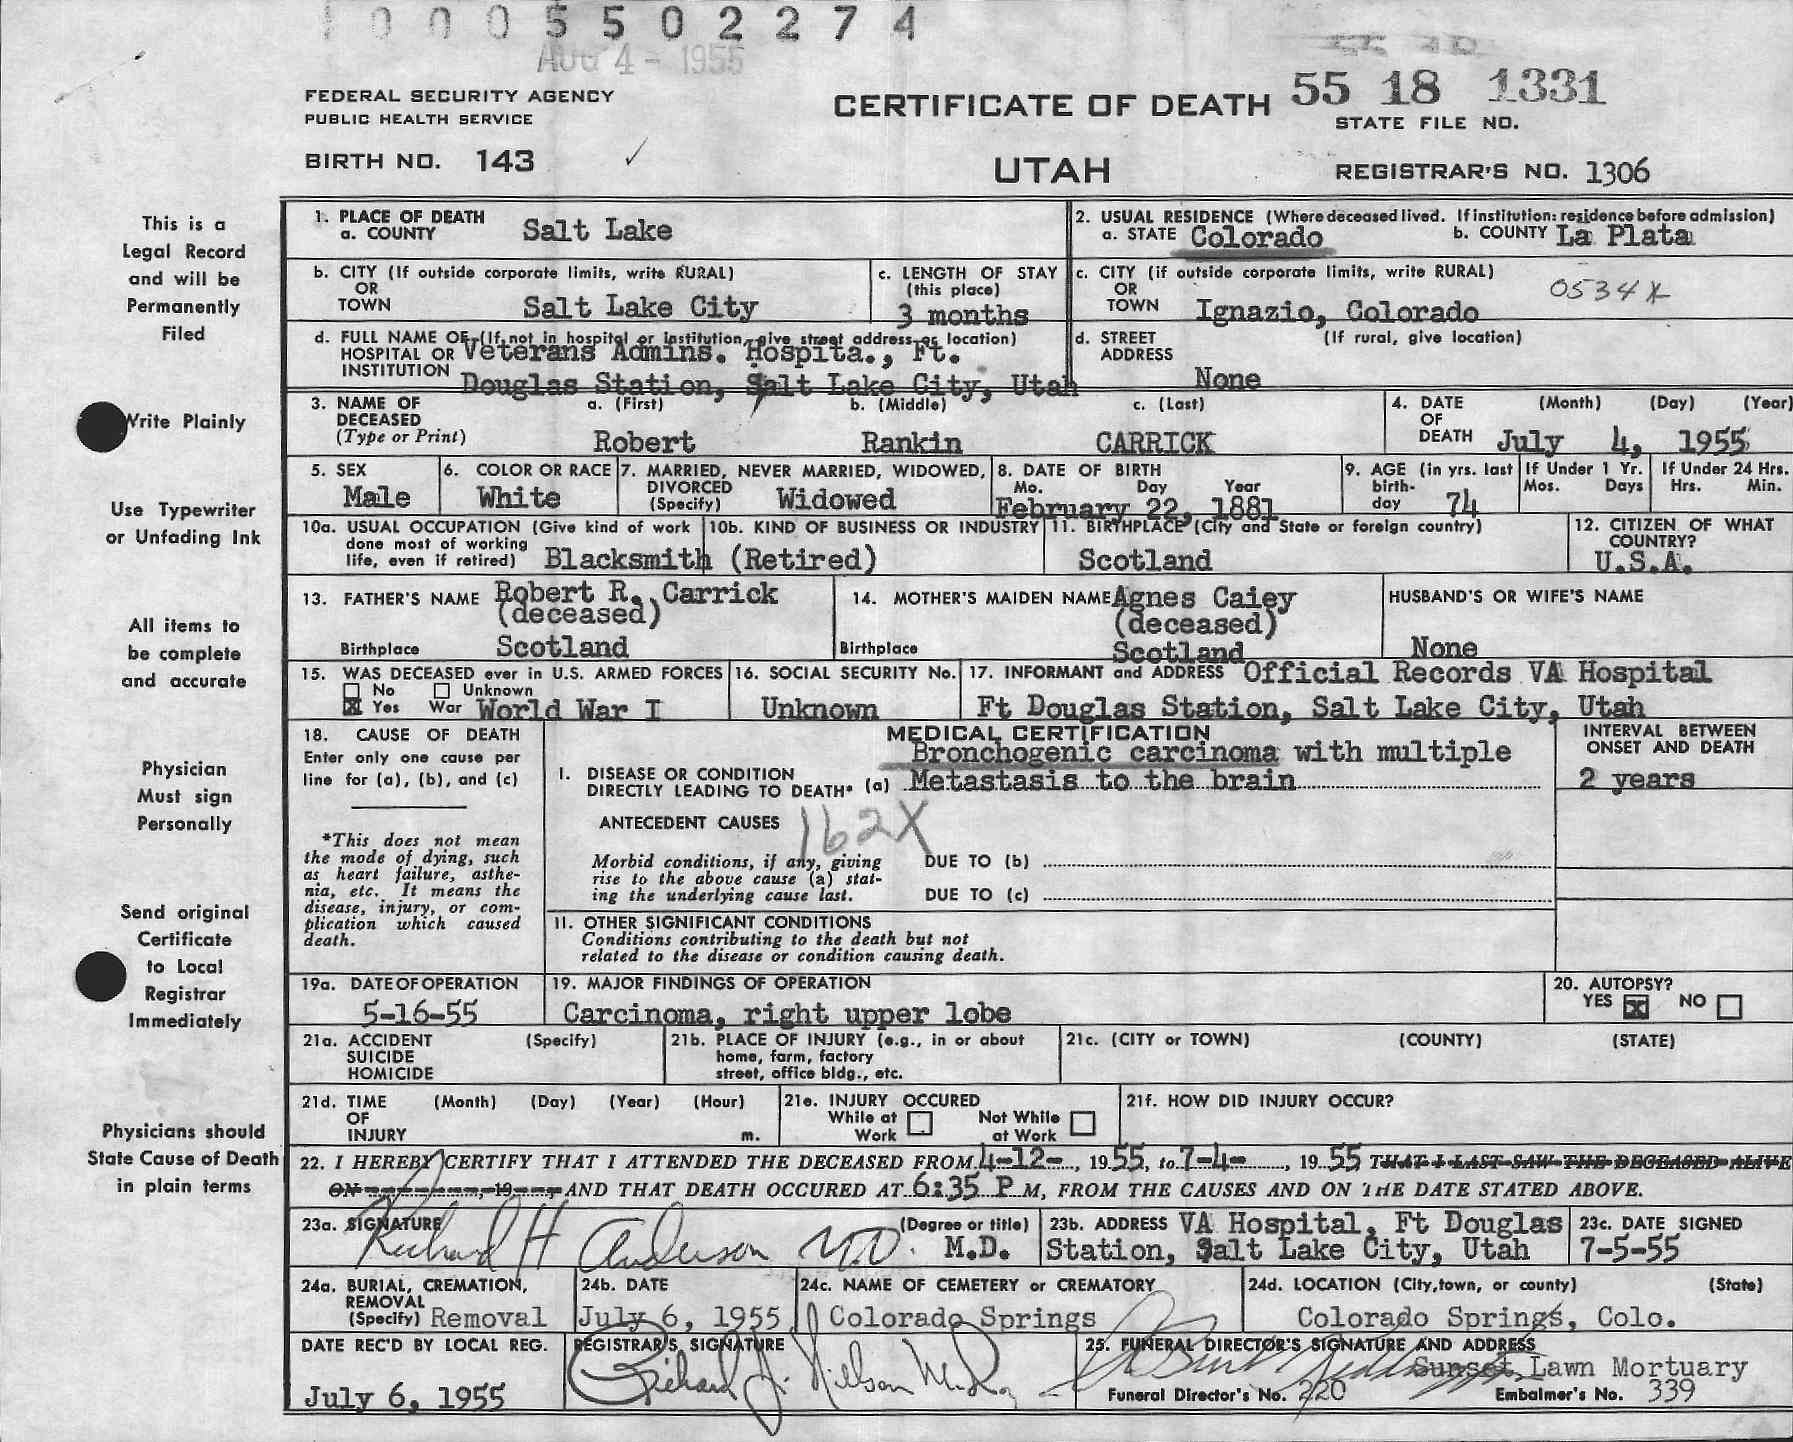 10005502274
AUG 4 - 1955
FEDERAL SECURITY AGENCY
PUBLIC HEALTH SERVICE
BIRTH NO. 143
CERTIFICATE OF DEATH
UTAH
55 18 1331
STATE FILE NO.
REGISTRAR'S NO. 1306
This is a
Legal Record
and will be
Permanently
Filed
Write Plainly
Use Typewriter
or Unfading Ink
All items to
be complete
and accurate
Physician
Must sign
Personally
Send original
Certificate
to Local
Registrar
Immediately
Physicians should
State Cause of Death
in plain terms
1. PLACE OF DEATH
a. COUNTY Salt Lake
2. USUAL RESIDENCE (Where deceased lived. If institution: residence before admission)
a. STATE Colorado b. COUNTY La Plata
b. CITY (If outside corporate limits, write RURAL)
OR
TOWN Salt Lake City
c. LENGTH OF STAY
(this place)
3 months
c. CITY (if outside corporate limits, write RURAL)
OR
TOWN Ignazio, Colorado
0534X
d. FULL NAME OF (If not in hospital or institution, give street address or location)
HOSPITAL OR Veterans Admins. Hospita., Ft.
INSTITUTION Douglas Station, Salt Lake City, Utah
d. STREET (If rural, give location)
ADDRESS
None
3. NAME OF a. (First) b. (Middle) c. (Last)
DECEASED
(Type or Print) Robert Rankin CARRICK
4. DATE (Month) (Day) (Year)
OF
DEATH July 4, 1955
5. SEX
Male
6. COLOR OR RACE
White
7. MARRIED, NEVER MARRIED, WIDOWED,
DIVORCED
(Specify) Widowed
8. DATE OF BIRTH
Mo. Day Year
February 22, 1881
9. AGE (in yrs. last
birth-
day 74
If Under 1 Yr.
Mos. Days
If Under 24 Hrs.
Hrs. Min.
10a. USUAL OCCUPATION (Give kind of work
done most of working
life, even if retired) Blacksmith (Retired)
10b. KIND OF BUSINESS OR INDUSTRY
11. BIRTHPLACE (City and State or foreign country)
Scotland
12. CITIZEN OF WHAT
COUNTRY?
U.S.A.
13. FATHER'S NAME Robert R. Carrick
(deceased)
Birthplace Scotland
14. MOTHER'S MAIDEN NAME Agnes Caiey
(deceased)
Birthplace Scotland
HUSBAND'S OR WIFE'S NAME
None
15. WAS DECEASED ever in U.S. ARMED FORCES
No Unknown
X Yes War World War I
16. SOCIAL SECURITY No.
Unknown
17. INFORMANT and ADDRESS Official Records VA Hospital
Ft Douglas Station, Salt Lake City, Utah
18. CAUSE OF DEATH
Enter only one cause per
line for (a), (b), and (c)
*This does not mean
the mode of dying, such
as heart failure, asthe-
nia, etc. It means the
disease, injury, or com-
plication which caused
death.
MEDICAL CERTIFICATION
Bronchogenic carcinoma with multiple
I. DISEASE OR CONDITION
DIRECTLY LEADING TO DEATH* (a) Metastasis to the brain
INTERVAL BETWEEN
ONSET AND DEATH
2 years
ANTECEDENT CAUSES
162X
Morbid conditions, if any, giving
rise to the above cause (a) stat-
ing the underlying cause last.
DUE TO (b)
DUE TO (c)
II. OTHER SIGNIFICANT CONDITIONS
Conditions contributing to the death but not
related to the disease or condition causing death.
19a. DATE OF OPERATION
5-16-55
19. MAJOR FINDINGS OF OPERATION
Carcinoma, right upper lobe
20. AUTOPSY?
YES X NO
21a. ACCIDENT (Specify)
SUICIDE
HOMICIDE
21b. PLACE OF INJURY (e.g., in or about
home, farm, factory
street, office bldg., etc.
21c. (CITY or TOWN) (COUNTY) (STATE)
21d. TIME (Month) (Day) (Year) (Hour)
OF
INJURY m.
21e. INJURY OCCURED
While at Not While
Work at Work
21f. HOW DID INJURY OCCUR?
22. I HEREBY CERTIFY THAT I ATTENDED THE DECEASED FROM 4-12-, 1955, to 7-4-, 1955 THAT I LAST SAW THE DECEASED ALIVE
ON , 19 , AND THAT DEATH OCCURED AT 6:35 P M, FROM THE CAUSES AND ON THE DATE STATED ABOVE.
23a. SIGNATURE (Degree or title)
Richard H Anderson M.D. M.D.
23b. ADDRESS VA Hospital, Ft Douglas
Station, Salt Lake City, Utah
23c. DATE SIGNED
7-5-55
24a. BURIAL, CREMATION,
REMOVAL
(Specify) Removal
24b. DATE
July 6, 1955
24c. NAME OF CEMETERY or CREMATORY
Colorado Springs
24d. LOCATION (City, town, or county) (State)
Colorado Springs, Colo.
DATE REC'D BY LOCAL REG.
July 6, 1955
REGISTRAR'S SIGNATURE
Richard J. Nielson
25. FUNERAL DIRECTOR'S SIGNATURE AND ADDRESS
Sunset Lawn Mortuary
Funeral Director's No. 220 Embalmer's No. 339